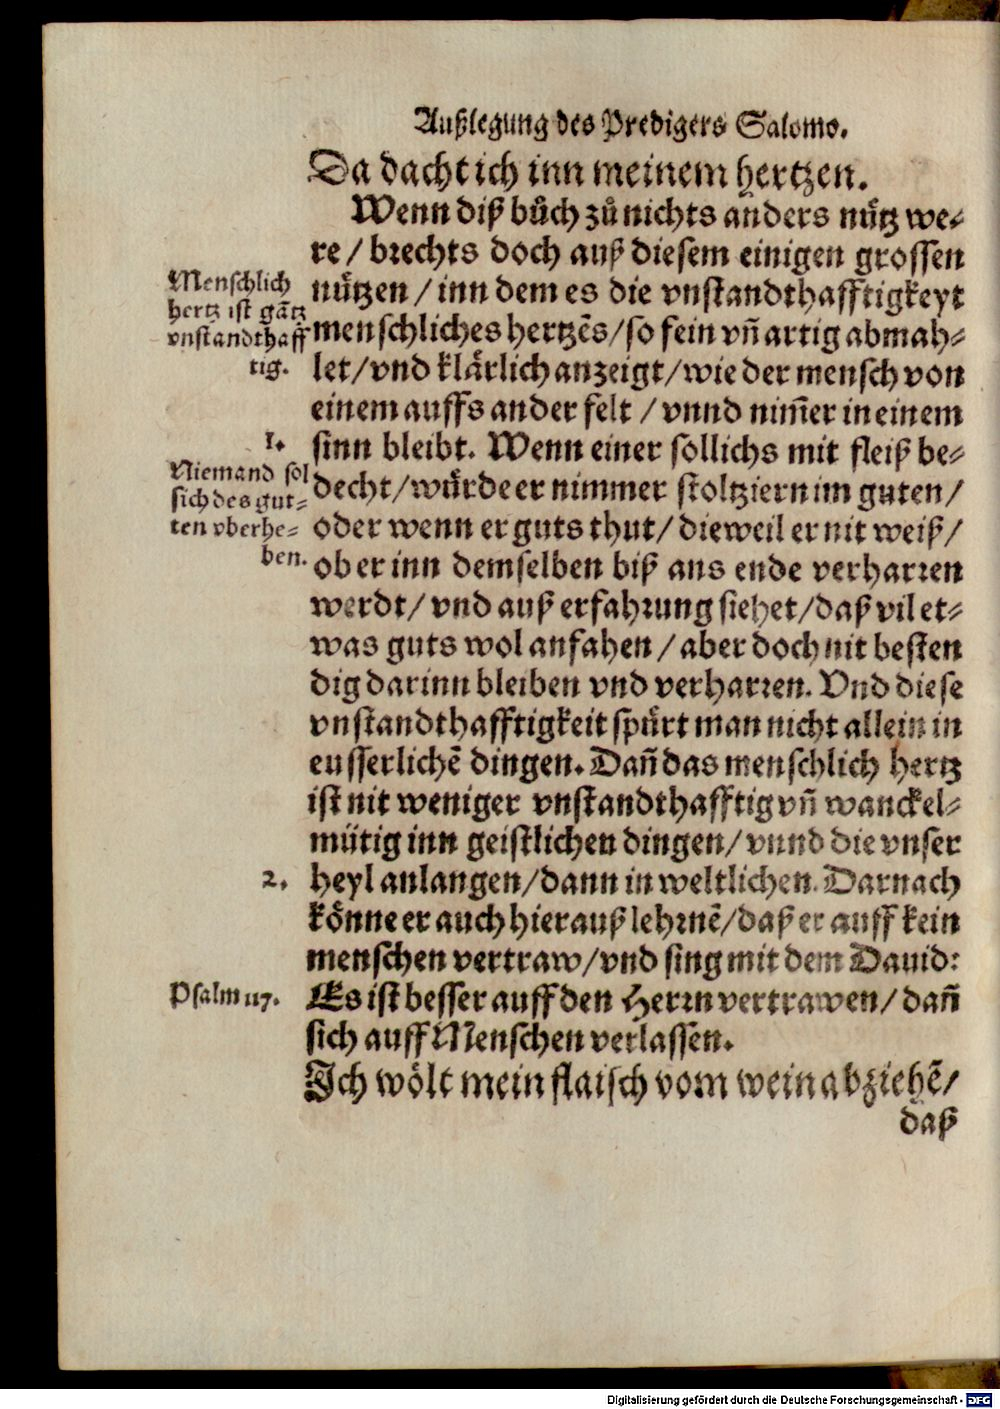 Außlegung des Predigers Salomo.
Da dacht ich inn meinem hertzen.
Wenn diß bůch zů nichts anders nütz we⸗
re / brechts doch auß diesem einigen grossen
nützen / inn dem es die vnstandthafftigkeyt
menschliches hertzēs / so fein vñ artig abmah⸗
let / vnd klärlich anzeigt / wie der mensch von
einem auffs ander felt / vnnd nim̃er in einem
sinn bleibt. Wenn einer sollichs mit fleiß be⸗
decht / würde er nimmer stoltziern im guten /
oder wenn er guts thut / dieweil er nit weiß /
ob er inn demselben biß ans ende verharren
werdt / vnd auß erfahrung siehet / daß vil et⸗
was guts wol anfahen / aber doch nit besten
dig darinn bleiben vnd verharren. Vnd diese
vnstandthafftigkeit spürt man nicht allein in
eusserlichē dingen. Dañ das menschlich hertz
ist nit weniger vnstandthafftig vñ wanckel⸗
mütig inn geistlichen dingen / vnnd die vnser
heyl anlangen / dann in weltlichen. Darnach
könne er auch hierauß lehrnē / daß er auff kein
menschen vertraw / vnd sing mit dem Dauid:
Es ist besser auff den Herrn vertrawen / dañ
sich auff Menschen verlassen.
Ich wölt mein flaisch vom wein abziehē /
daß
Menschlich
hertz ist gātz
vnstandthaff
tig.
1.
Niemand sol
sich des gut⸗
ten vberhe⸗
ben.
2.
Psalm 117.
Digitalisierung gefördert durch die Deutsche Forschungsgemeinschaft - DFG